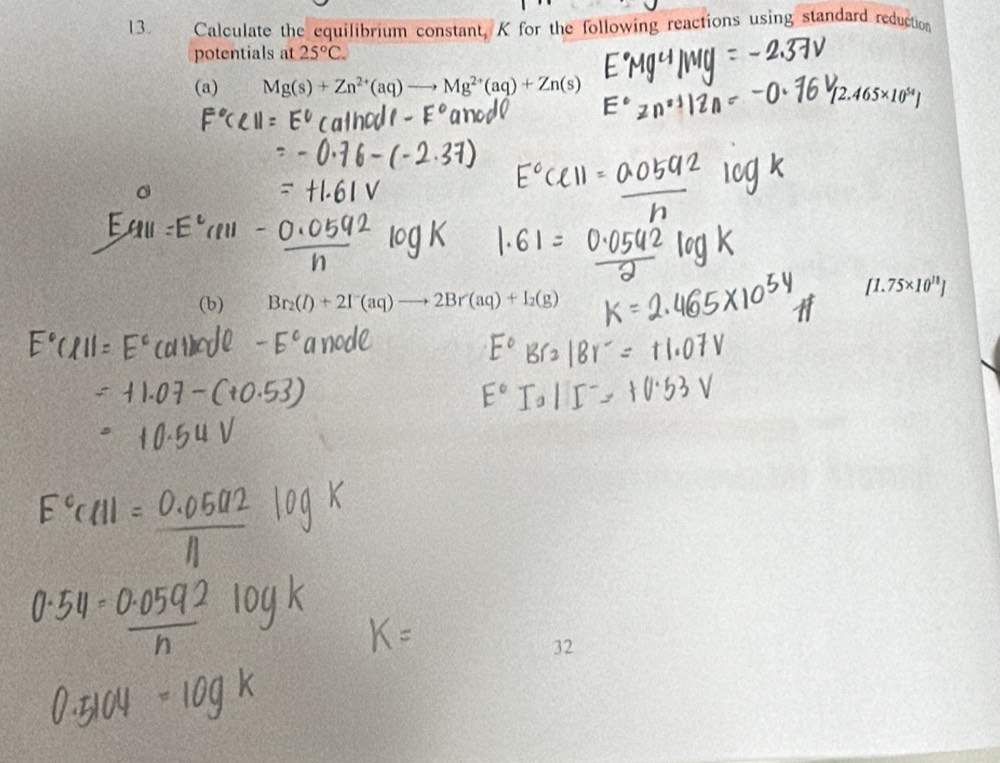 13. Calculate the equilibrium constant, K for the following reactions using standard reduction
potentials at 25°C.
(a) Mg(s) + Zn²⁺(aq) → Mg²⁺(aq) + Zn(s)
E°Mg²⁺|Mg = -2.37V
E° Zn²⁺|Zn = -0.76 V
[2.465×10⁵⁴]
E°cell = E° cathode - E° anode
= -0.76 - (-2.37)
= +1.61 V
E°cell = 0.0592/n log K
Ecell = E°cell - 0.0592/n log K
1.61 = 0.0592/2 log K
K = 2.465X10⁵⁴ #
[1.75×10¹⁸]
(b) Br₂(l) + 2I⁻(aq) → 2Br⁻(aq) + I₂(g)
E°cell = E°cathode - E°anode
E° Br₂|Br⁻ = +1.07V
= +1.07 - (+0.53)
E° I₂|I⁻ = +0.53 V
= +0.54 V
E°cell = 0.0592/n log K
0.54 = 0.0592/n log K
K =
0.5104 = log K
32